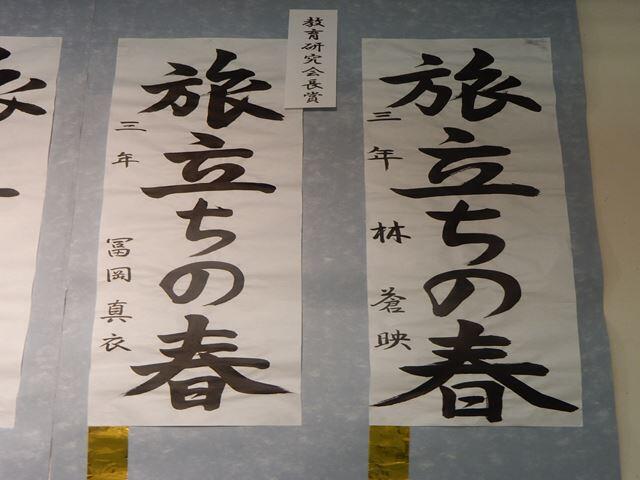 教育研究会長賞
旅立ちの春
三年 林 蒼映
旅立ちの春
三年 冨岡真衣